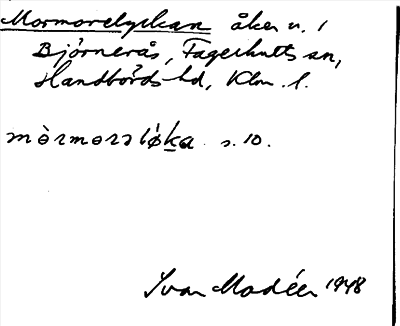 Mormorelyckan åker n. 1
Björnerås, Fagerhults sn,
Handbörds hd, Klm. l.
mòrmorsløka s. 10.
Ivar Modéer 1948